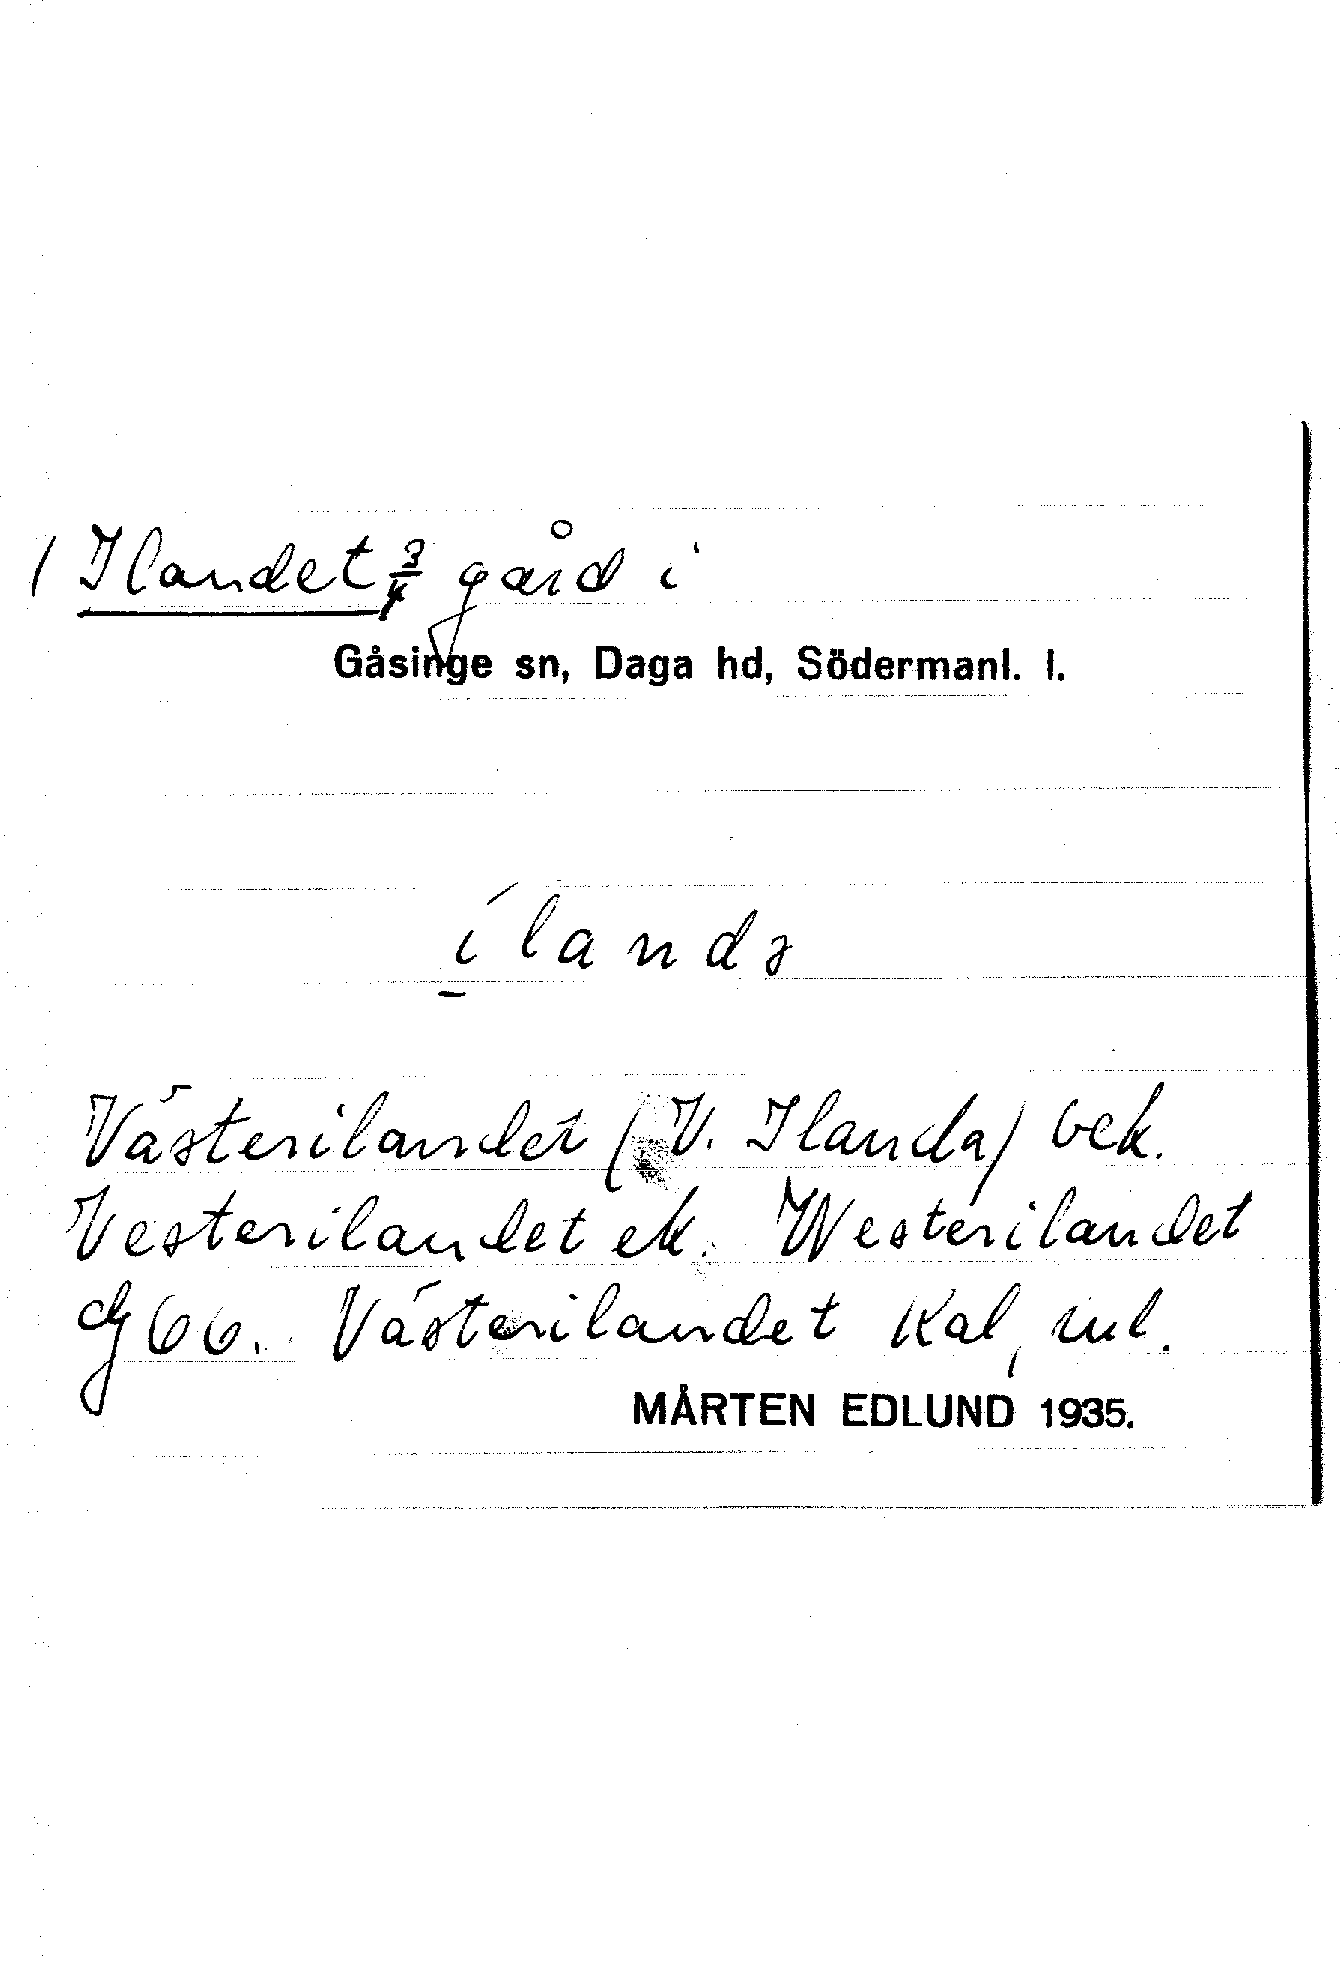 / Ilandet 3/4 gård i
Gåsinge sn, Daga hd, Södermanl. l.
í l a n d ə
Västerilandet (V. Ilanda) bek.
Vesterilandet ek. Westerilandet
dj 66. Västerilandet Kal,
MÅRTEN EDLUND 1935.